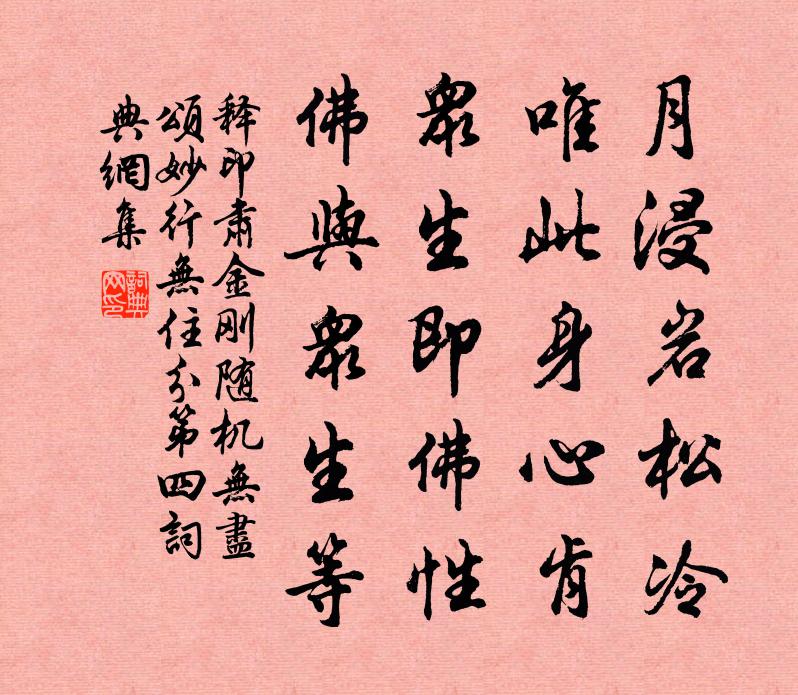 月浸岩松冷
唯此身心肯
眾生即佛性
佛與眾生等
释印肃金刚随机無盡
頌妙行無住分第四詞
典網集
詞典
网印